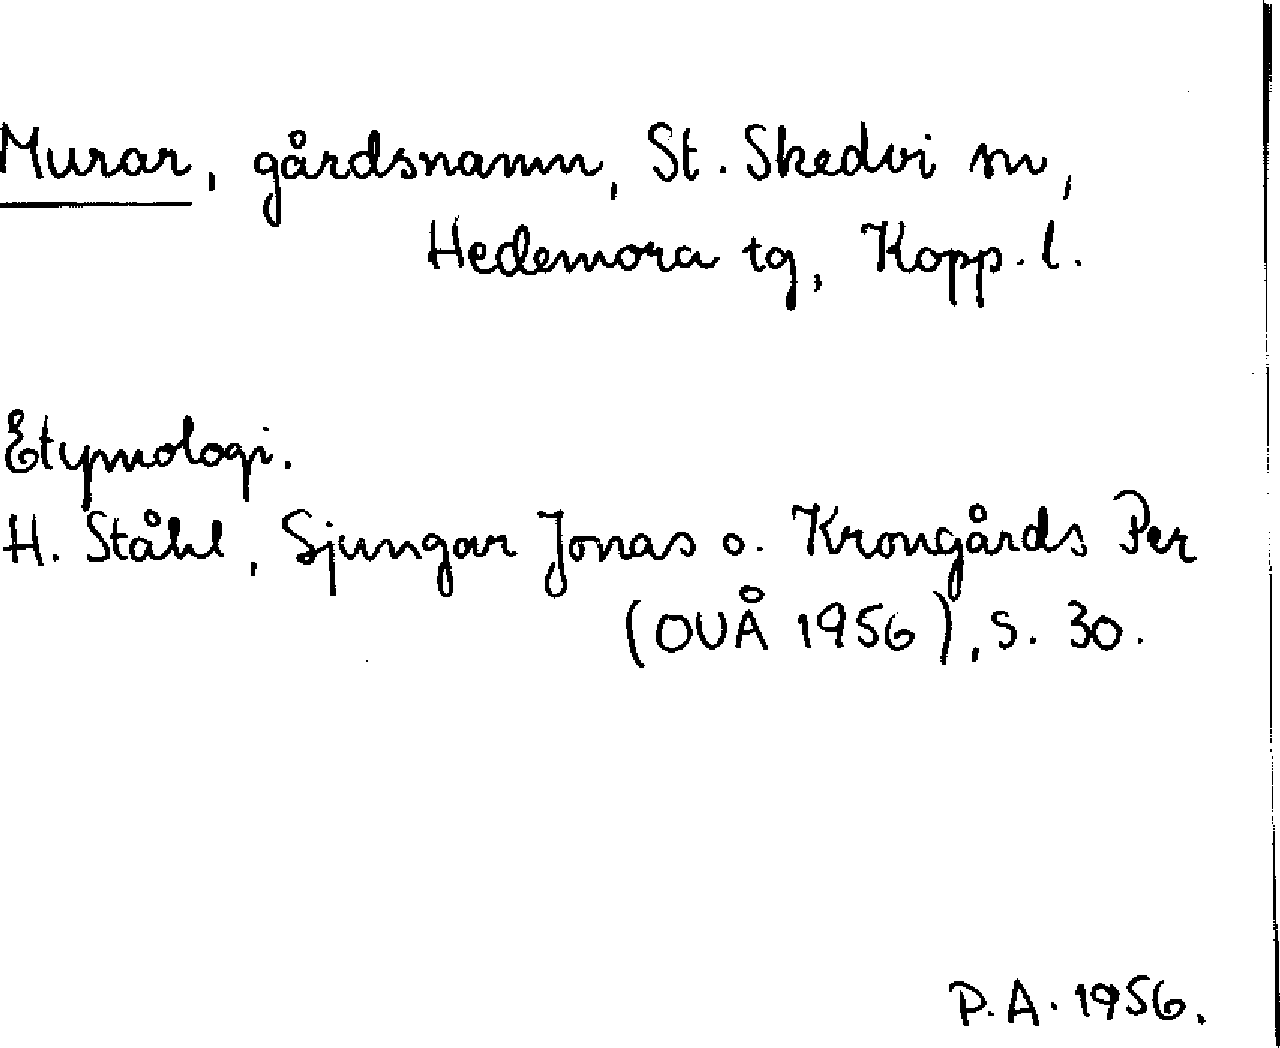 Murar, gårdsnamn, St. Skedvi sn,
Hedemora tg, Kopp. l.
Etymologi.
H. Ståhl, Sjungar Jonas o. Krongårds Per
(OUÅ 1956), s. 30.
P.A. 1956.